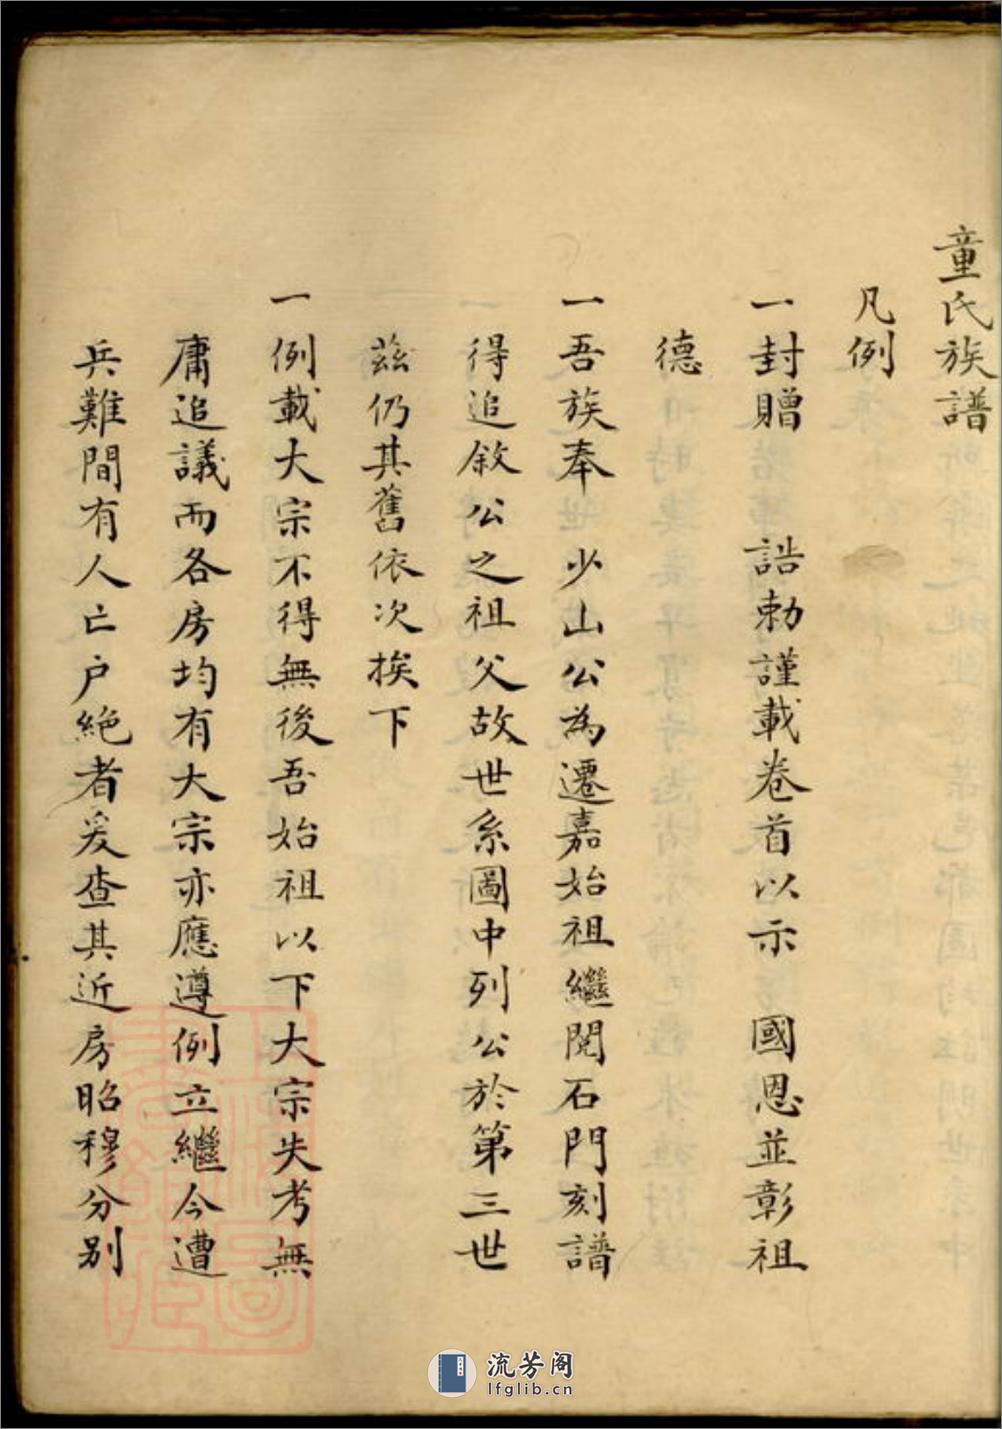 童氏族譜
凡例
一封贈 誥勅謹載卷首以示 國恩並彰祖
德
一吾族奉 少山公為遷嘉始祖繼閱石門刻譜
得追敘公之祖父故世系圖中列公於第三世
茲仍其舊依次挨下
一例載大宗不得無後吾始祖以下大宗失考無
庸追議而各房均有大宗亦應遵例立繼今遭
兵難間有人亡户絶者爰查其近房昭穆分別
流芳阁
lfglib.cn